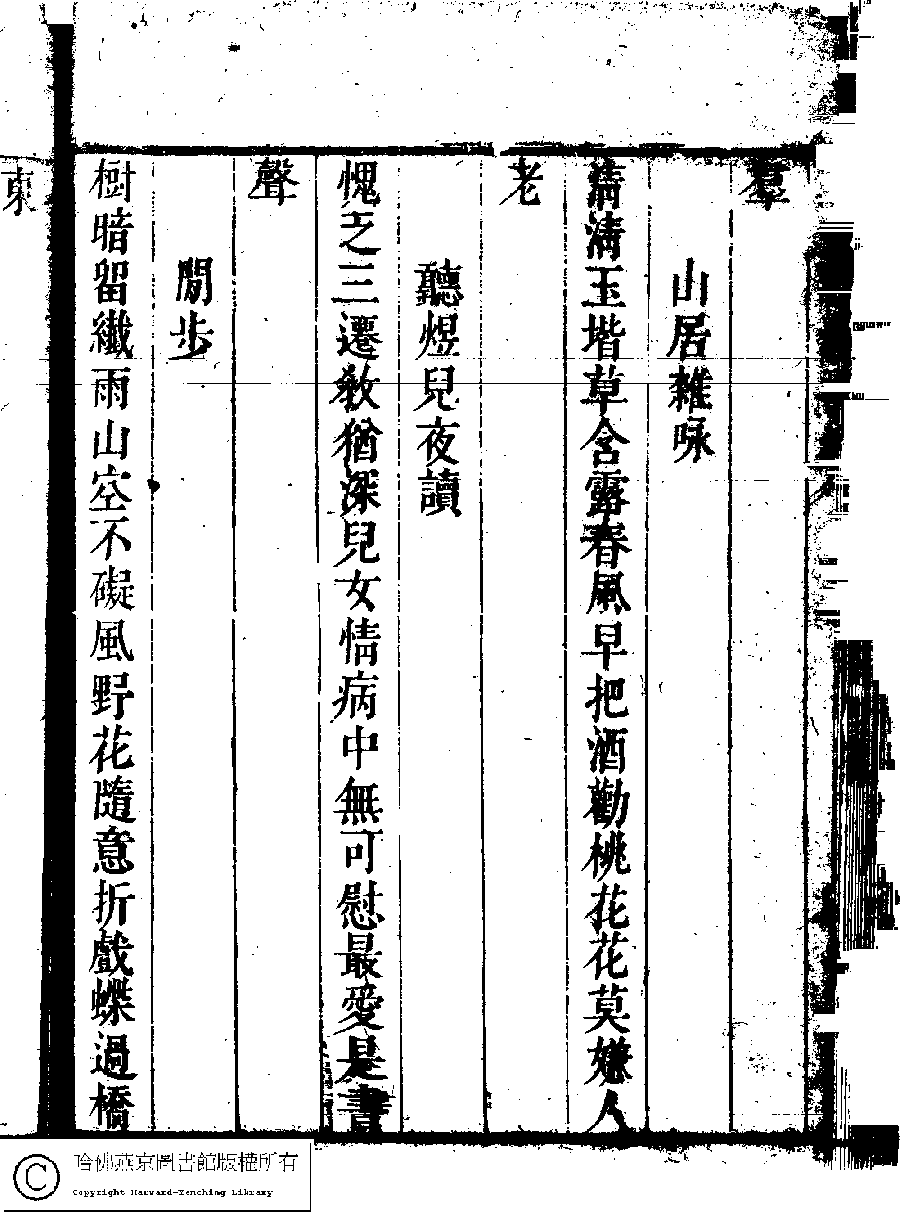 羣
山居雜咏
清清玉堦草含露春風早把酒勸桃花花莫嫌人
老
聽煜兒夜讀
愧乏三遷敎猶深兒女情病中無可慰最愛是書
聲
閒步
樹暗留纖雨山空不礙風野花隨意折戲蝶過橋
東
哈佛燕京圖書館版權所有
Copyright Harvard-Yenching Library